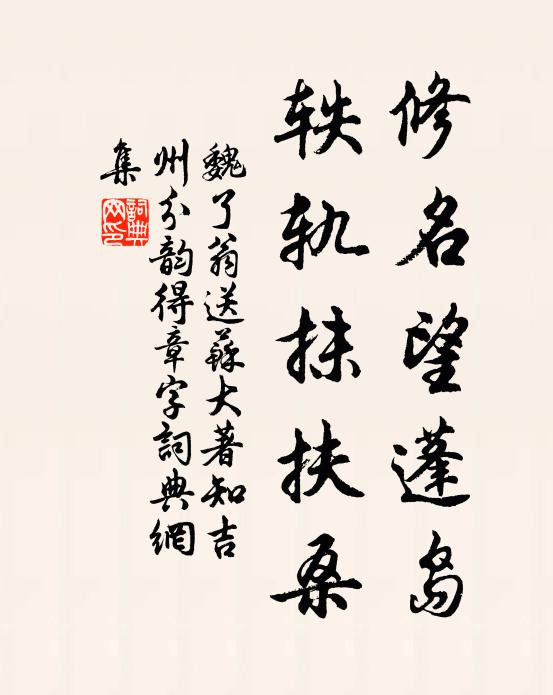 修名望蓬岛
轶轨抹扶桑
魏了翁送蘇大著知吉
州分韵得章字詞典網
集
詞典网印